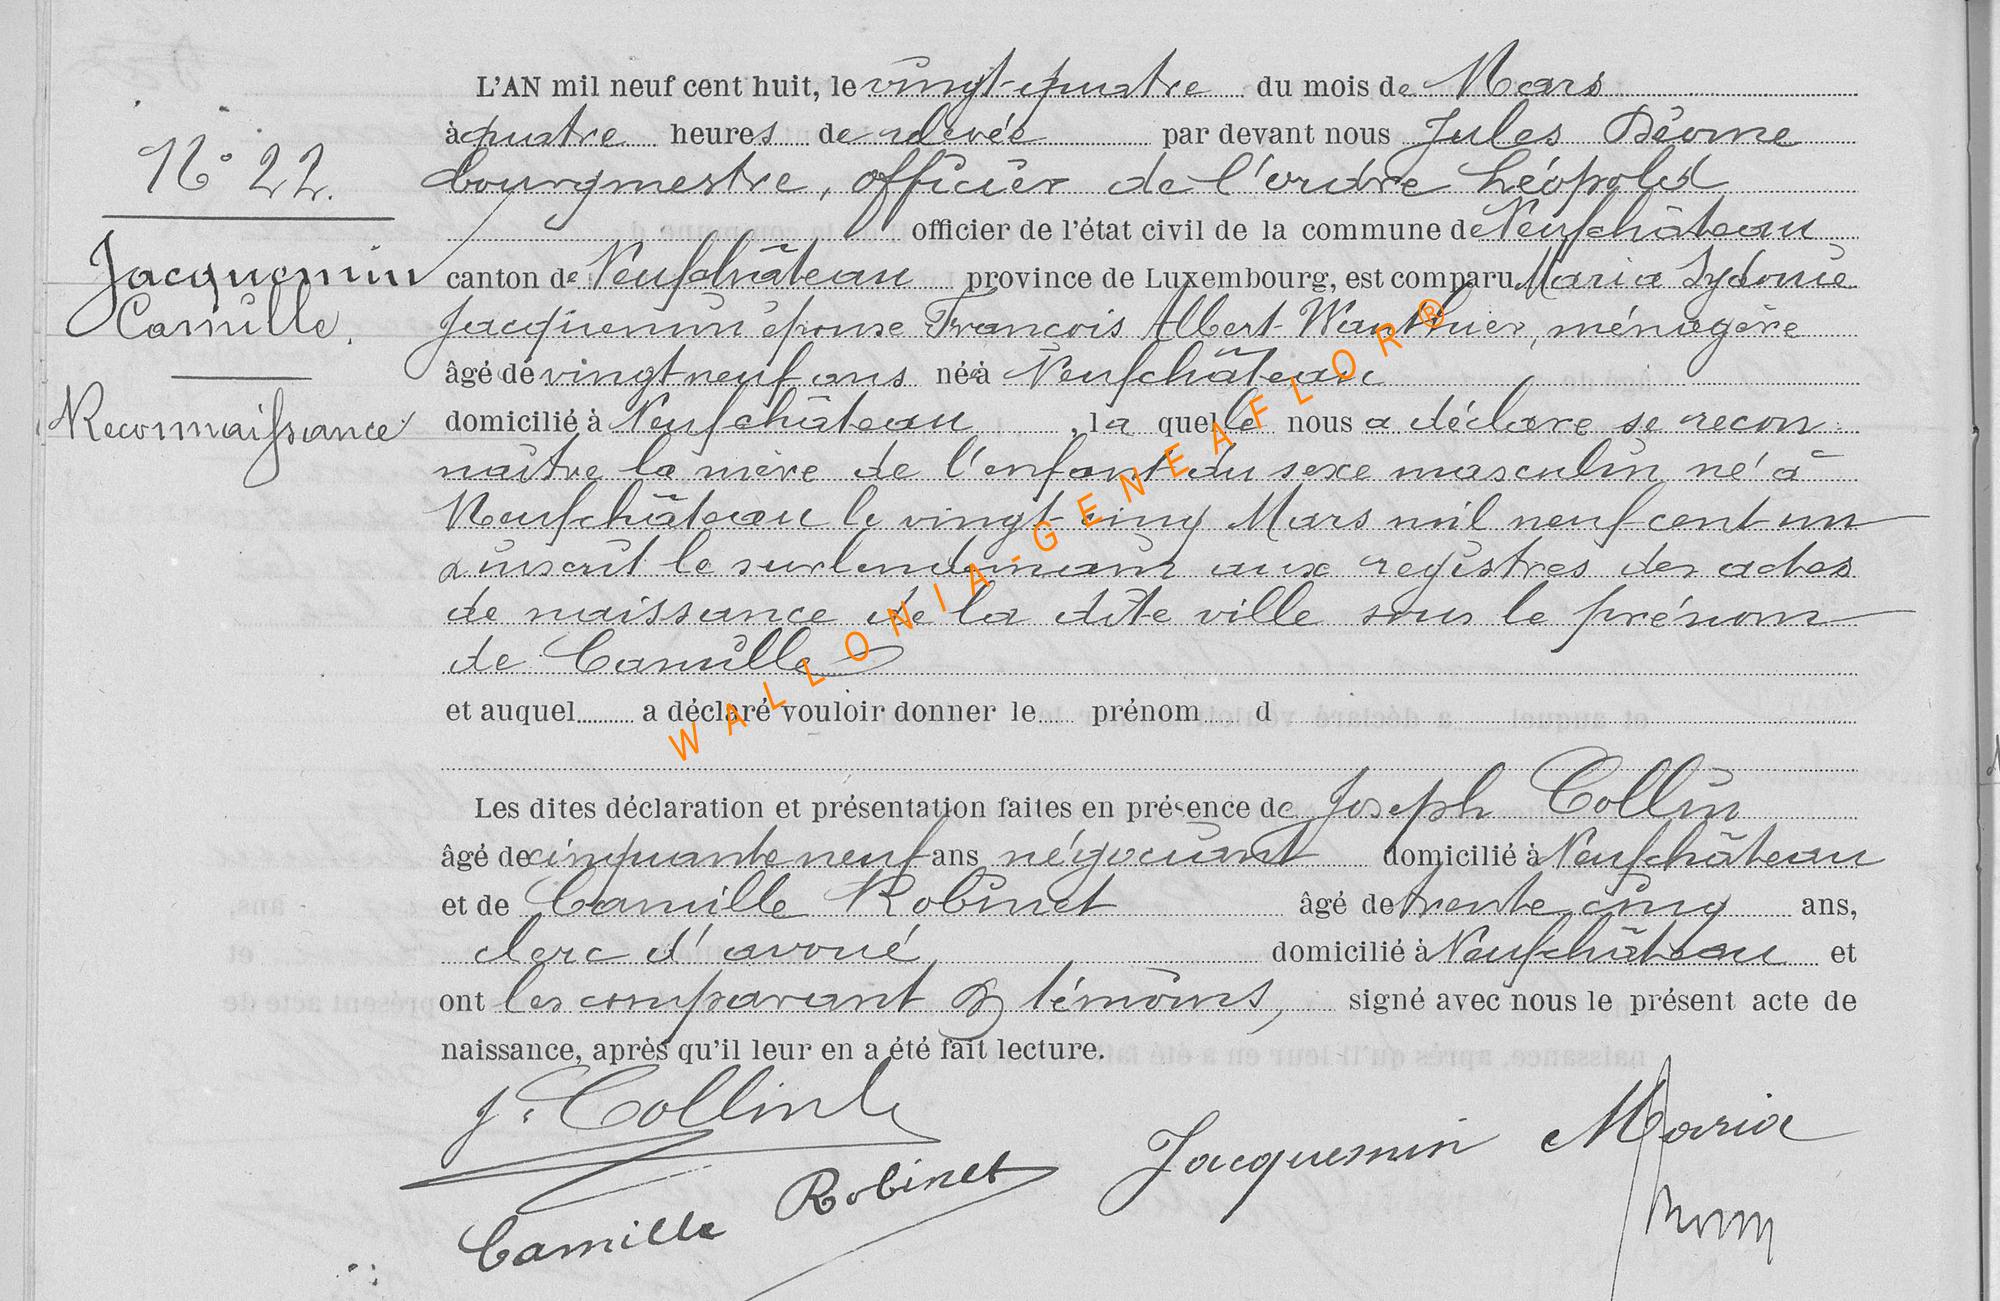 L'AN mil neuf cent huit, le vingt-quatre du mois de Mars
à quatre heures de relevée par devant nous Jules
N° 22.
bourgmestre, officier de l'ordre Léopold
officier de l'état civil de la commune de Neufchâteau
Jacquemin
canton de Neufchâteau province de Luxembourg, est comparu Maria Sydonie
Camille.
Jacquemin épouse François Albert Wauthier, ménagère
âgé de vingt neuf ans née à Neufchâteau
Reconnaissance
domicilié à Neufchâteau, la quelle nous a déclaré se recon
naître la mère de l'enfant du sexe masculin né à
Neufchâteau le vingt cinq Mars mil neuf cent un
& inscrit le surlendemain aux registres des actes
de naissance de la dite ville sous le prénom
de Camille
et auquel a déclaré vouloir donner le prénom d
Les dites déclaration et présentation faites en présence de Joseph Collin
âgé de cinquante neuf ans négociant domicilié à Neufchâteau
et de Camille Robinet âgé de trente cinq ans,
clerc d'avoué domicilié à Neufchâteau et
ont les comparant & témoins, signé avec nous le présent acte de
naissance, après qu'il leur en a été fait lecture.
J. Collin
Jacquemin Maria
Camille Robinet
WALLONIA-GENEAFLOR®